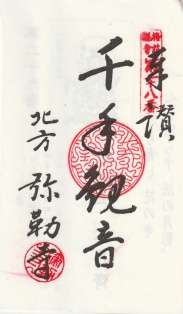 奉讃
千手観音
北方 弥勒寺